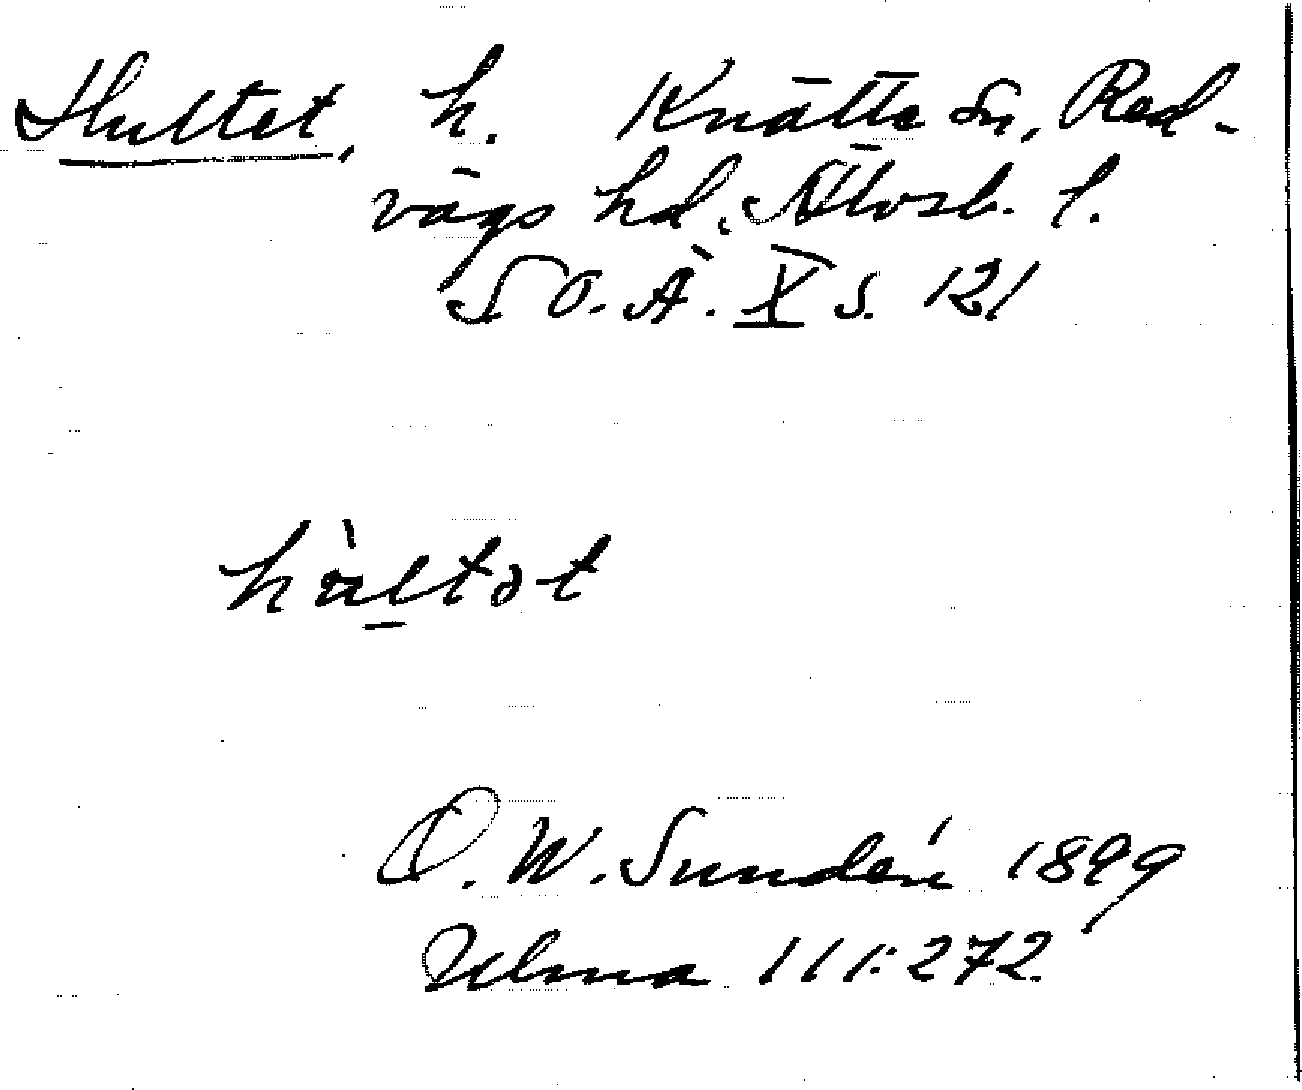 Hultet, h. Knätte sn, Red-
vägs hd. Älvsb. l.
S O. Ä. X s. 121
hàltot
O. W. Sundén 1899
Ulma 111:272